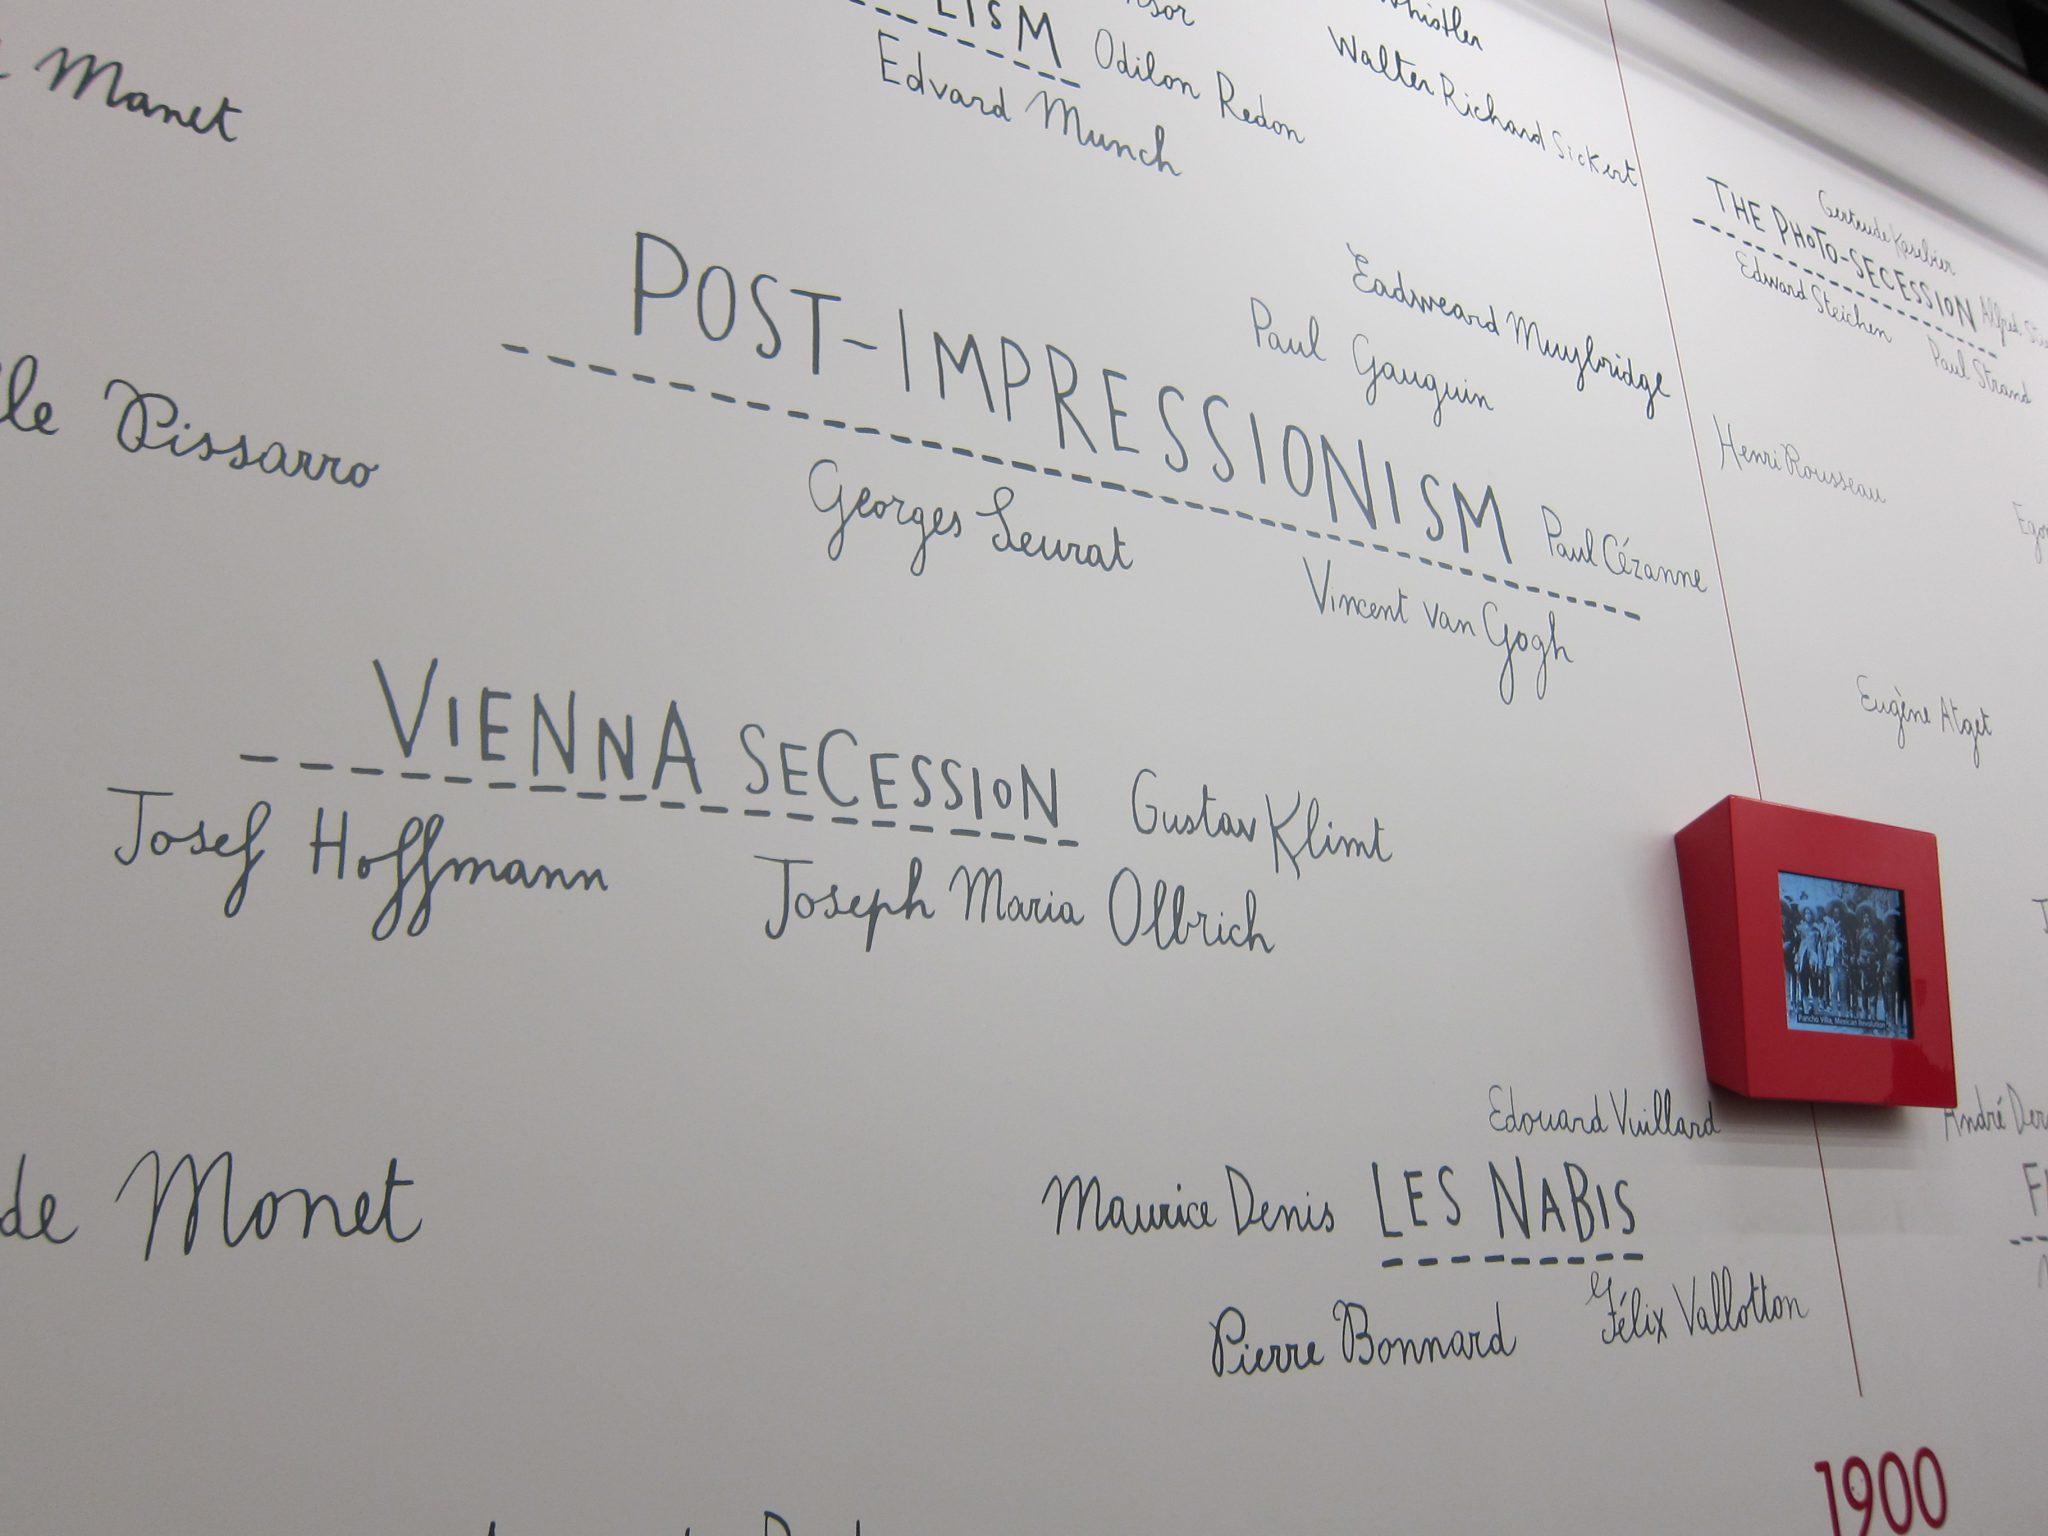 Whistler
LISM
Odilon Redon
Walter Richard Sickert
Manet
Edvard Munch
Gertrude Kasebier
THE PHOTO-SECESSION
Edward Steichen
Paul Strand
POST-IMPRESSIONISM
Eadweard Muybridge
Paul Gauguin
Henri Rousseau
Pissarro
Georges Seurat
Paul Cézanne
Vincent van Gogh
Eugène Atget
VIENNA SECESSION
Gustav Klimt
Josef Hoffmann
Joseph Maria Olbrich
Pancho Villa, Mexican Revolution
Edouard Vuillard
André
de Monet
Maurice Denis
LES NABIS
Pierre Bonnard
Félix Vallotton
1900